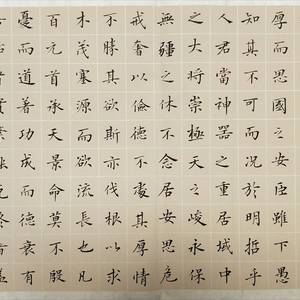 厚而思國之治臣雖下愚
知其不可而況於明哲乎
人君當神器之重居域中
之大將崇極天之峻永保
無疆之休不念居安思危
戒奢以儉德不處其厚情
不勝其欲斯亦伐根以求
木茂塞源而欲流長也凡
百元首承天景命莫不殷
憂而道著功成而德衰有